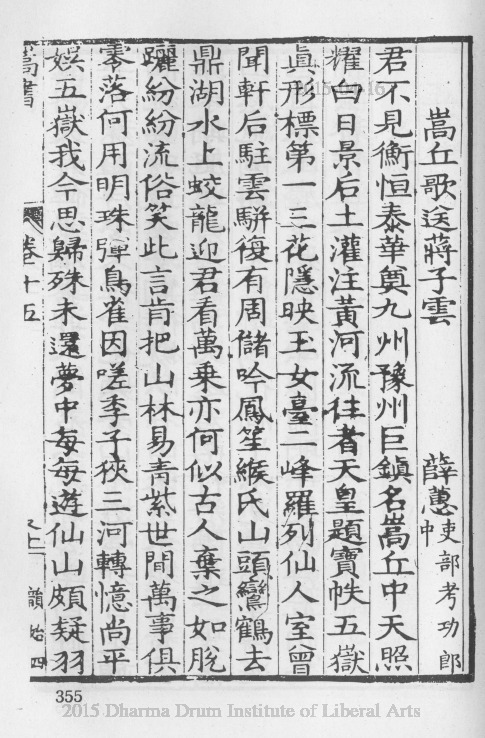 嵩丘歌送蔣子雲　薛蕙吏部考功郎中
君不見衡恒泰華奠九州豫州巨鎮名嵩丘中天照
耀白日景后土灌注黃河流往者天皇題寶帙五嶽
眞形標第一三花隱映玉女臺二峰羅列仙人室曾
聞軒后駐雲駢復有周儲吟鳳笙緱氏山頭鸞鶴去
鼎湖水上蛟龍迎君看萬乘亦何似古人棄之如脫
躧紛紛流俗笑此言肯把山林易青紫世間萬事俱
零落何用明珠彈鳥雀因嗟季子狹三河轉憶尚平
娛五嶽我今思歸殊未還夢中每每遊仙山頗疑羽
嵩書
卷十五
355
2015 Dharma Drum Institute of Liberal Arts